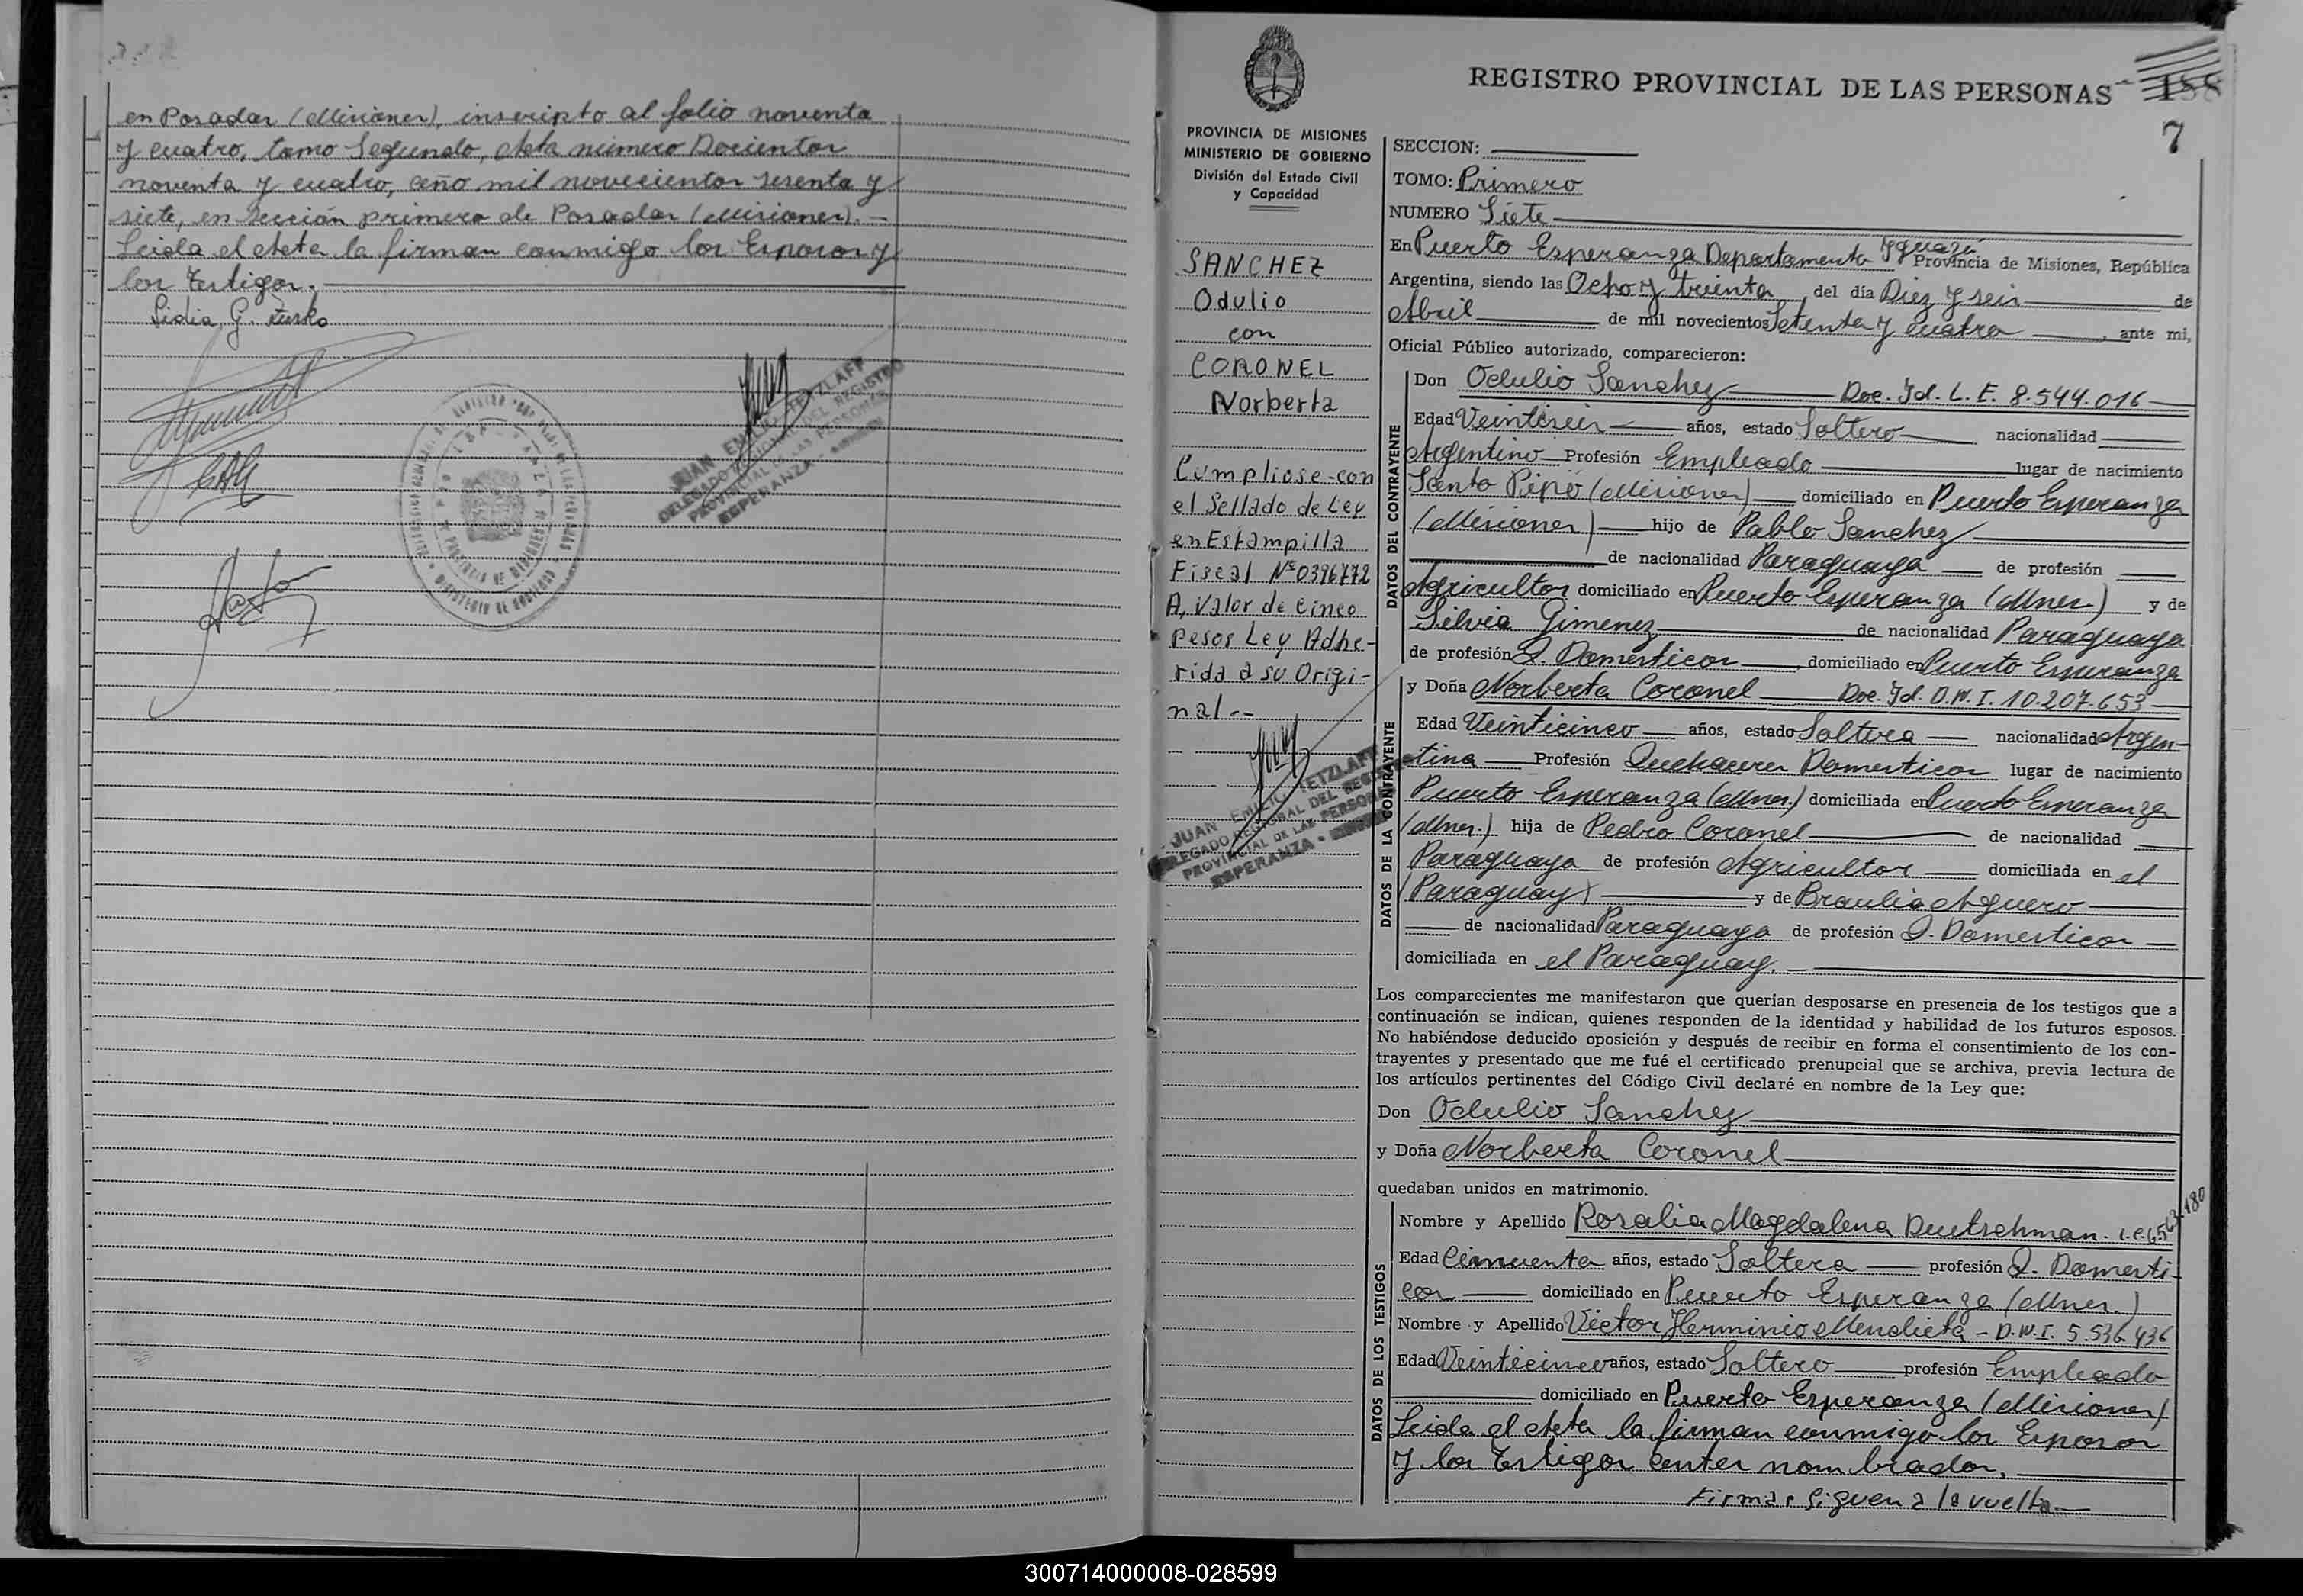 en Posadas (Misiones), inscripto al folio noventa
y cuatro, tomo Segundo, Acta número Docientos
noventa y cuatro, año mil novecientos sesenta y
siete, en sección primera de Posadas (Misiones).-
Leida el Acta la firman conmigo los Esposos y
los Testigos.
Lidia G. Zusko
JUAN EMILIO TETZLAFF
DELEGADO REGISTRO
PROVINCIAL DE LAS PERSONAS
ESPERANZA - MISIONES
REGISTRO PROVINCIAL DE LAS PERSONAS
188
7
PROVINCIA DE MISIONES
MINISTERIO DE GOBIERNO
División del Estado Civil
y Capacidad
SANCHEZ
Odulio
con
CORONEL
Norberta
Cumpliose-con
el Sellado de Ley
en Estampilla
Fiscal Nº 0396772
A, Valor de Cinco
Pesos Ley Adhe-
rida a su Origi-
nal.--
JUAN EMILIO TETZLAFF
DELEGADO REGIONAL DEL REGISTRO
PROVINCIAL DE LAS PERSONAS
ESPERANZA - MISIONES
SECCION:
TOMO: Primero
NUMERO Siete
En Puerto Esperanza Departamento Iguazú Provincia de Misiones, República
Argentina, siendo las Ocho y treinta, del día Diez y seis de
Abril de mil novecientos Setenta y cuatro, ante mi,
Oficial Público autorizado, comparecieron:
DATOS DEL CONTRAYENTE
Don Odulio Sanchez Doc. Id. L. E. 8.544.016
Edad Veintiseis años, estado Soltero nacionalidad
Argentino Profesión Empleado lugar de nacimiento
Santo Pipó (Misiones) domiciliado en Puerto Esperanza
(Misiones) hijo de Pablo Sanchez
de nacionalidad Paraguaya de profesión
Agricultor domiciliado en Puerto Esperanza (Mnes) y de
Silvia Gimenez de nacionalidad Paraguaya
de profesión Q. Domesticos domiciliado en Puerto Esperanza
DATOS DE LA CONTRAYENTE
y Doña Norberta Coronel Doc. Id. D.N.I. 10.207.653
Edad Veinticinco años, estado Soltera nacionalidad Argen-
tina Profesión Quehaceres Domesticos lugar de nacimiento
Puerto Esperanza (Mnes.) domiciliada en Puerto Esperanza
(Mnes.) hija de Pedro Coronel de nacionalidad
Paraguaya de profesión Agricultor domiciliada en el
(Paraguay) y de Braulia Aguero
de nacionalidad Paraguaya de profesión Q. Domesticos
domiciliada en el Paraguay.
Los comparecientes me manifestaron que querían desposarse en presencia de los testigos que a
continuación se indican, quienes responden de la identidad y habilidad de los futuros esposos.
No habiéndose deducido oposición y después de recibir en forma el consentimiento de los con-
trayentes y presentado que me fué el certificado prenupcial que se archiva, previa lectura de
los artículos pertinentes del Código Civil declaré en nombre de la Ley que:
Don Odulio Sanchez
y Doña Norberta Coronel
quedaban unidos en matrimonio.
DATOS DE LOS TESTIGOS
Nombre y Apellido Rosalia Magdalena Deutschman. L.C.
Edad Cincuenta años, estado Soltera profesión Q. Domesti-
cos domiciliado en Puerto Esperanza (Mnes.)
Nombre y Apellido Victor Herminio Mendieta - D.N.I. 5.536.436
Edad Veinticinco años, estado Soltero profesión Empleado
domiciliado en Puerto Esperanza (Misiones)
Leida el Acta la firman conmigo los Esposos
y los Testigos antes nombrados.
Firmas siguen a la vuelta.
300714000008-028599